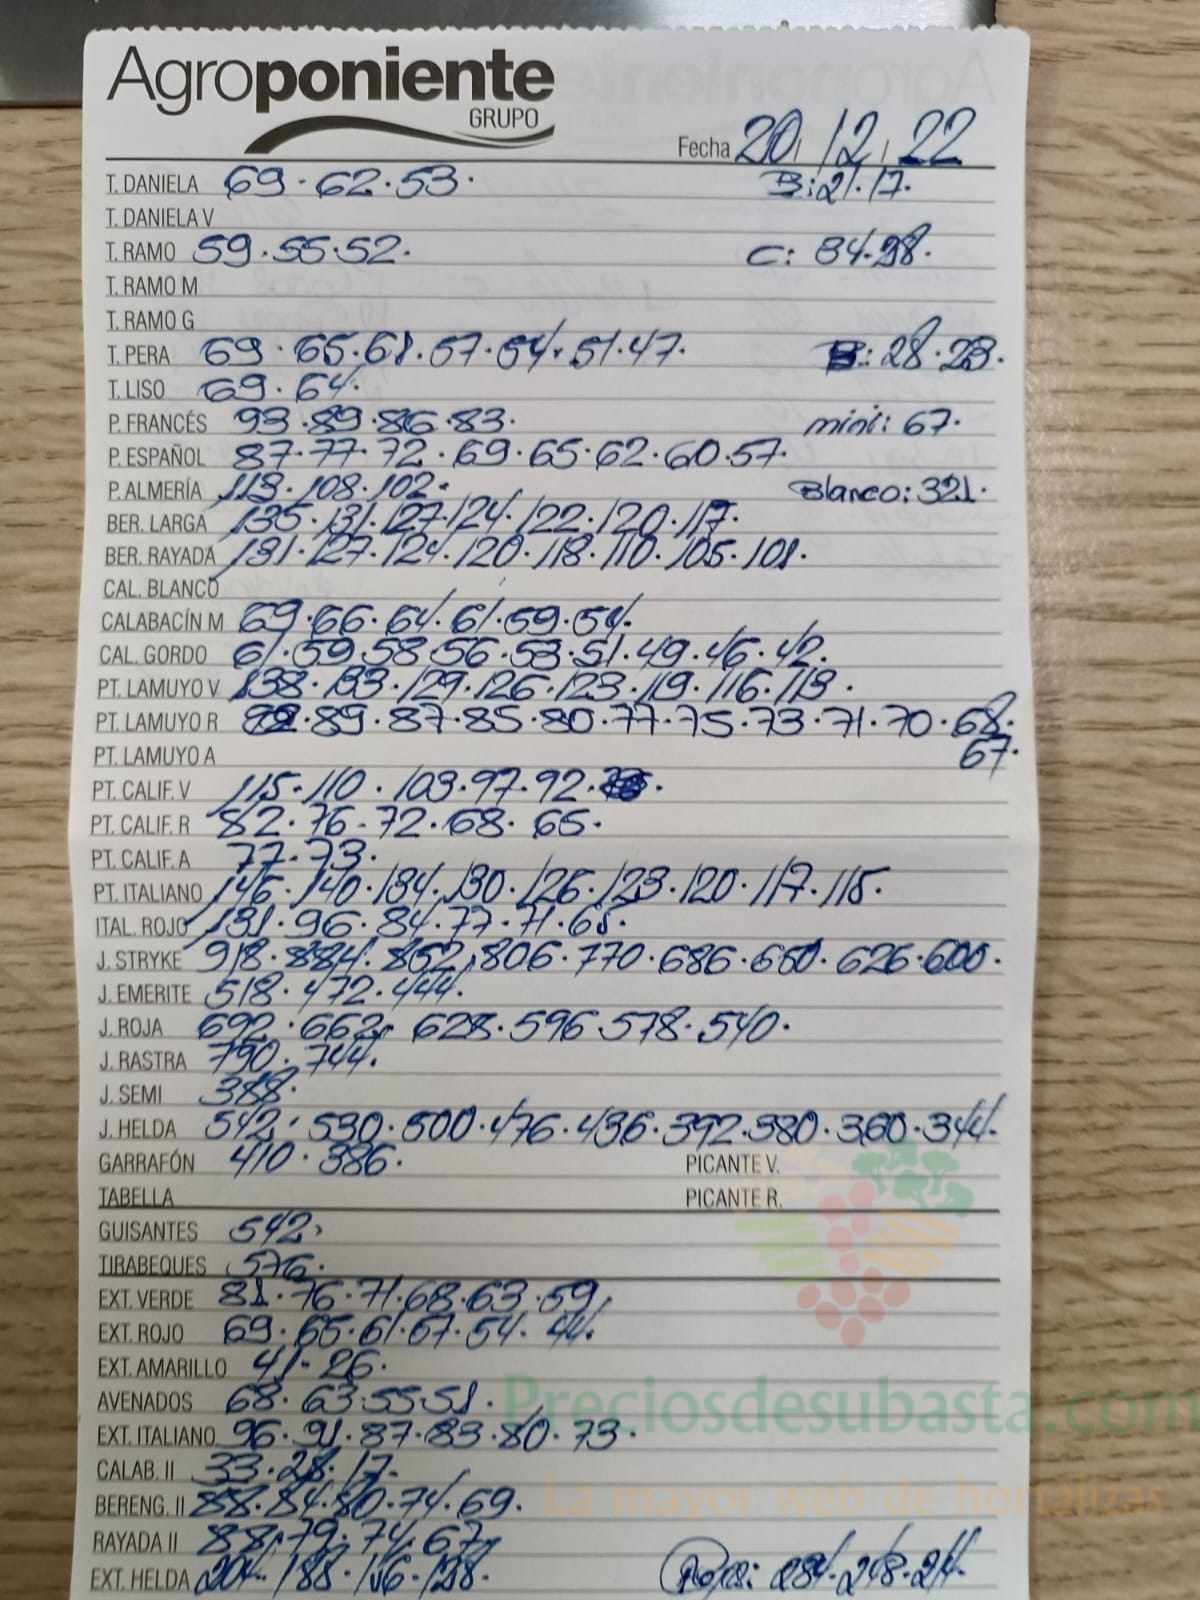 Agroponiente
GRUPO
Fecha 20/12/22
T. DANIELA 69·62·53· B: 21·17·
T. DANIELA V
T. RAMO 59·55·52· C: 34·28·
T. RAMO M
T. RAMO G
T. PERA 69·65·61·57·54·51·47· B: 28·23·
T. LISO 69·64·
P. FRANCÉS 93·89·86·83· mini: 67·
P. ESPAÑOL 87·77·72·69·65·62·60·57·
P. ALMERÍA 113·108·102· Blanco: 321·
BER. LARGA 135·131·127·124·122·120·117·
BER. RAYADA 131·127·124·120·118·110·105·101·
CAL. BLANCO
CALABACÍN M 69·66·64·61·59·54·
CAL. GORDO 61·59·58·56·53·51·49·46·42·
PT. LAMUYO V 138·133·129·126·123·119·116·113·
PT. LAMUYO R 89·87·85·80·77·75·73·71·70·68·
67·
PT. LAMUYO A
PT. CALIF. V 115·110·103·97·92·
PT. CALIF. R 82·76·72·68·65·
PT. CALIF. A 77·73·
PT. ITALIANO 146·140·134·130·126·123·120·117·115·
ITAL. ROJO 131·96·84·77·71·65·
J. STRYKE 918·884·852·806·770·686·650·626·600·
J. EMERITE 518·472·444·
J. ROJA 692·662·628·596·578·540·
J. RASTRA 790·744·
J. SEMI 388·
J. HELDA 542·530·500·476·436·392·380·360·344·
GARRAFÓN 410·386· PICANTE V.
TABELLA PICANTE R.
GUISANTES 542·
TIRABEQUES 576·
EXT. VERDE 81·76·71·68·63·59·
EXT. ROJO 69·65·61·57·54·44·
EXT. AMARILLO 41·26·
AVENADOS 68·63·55·51·
Preciosdesubasta.com
EXT. ITALIANO 96·91·87·83·80·73·
CALAB. II 33·28·17·
La mayor web de hortalizas
BERENG. II 88·84·80·74·69·
RAYADA II 88·79·74·67·
EXT. HELDA 204·188·138· Roja: 284·248·214·